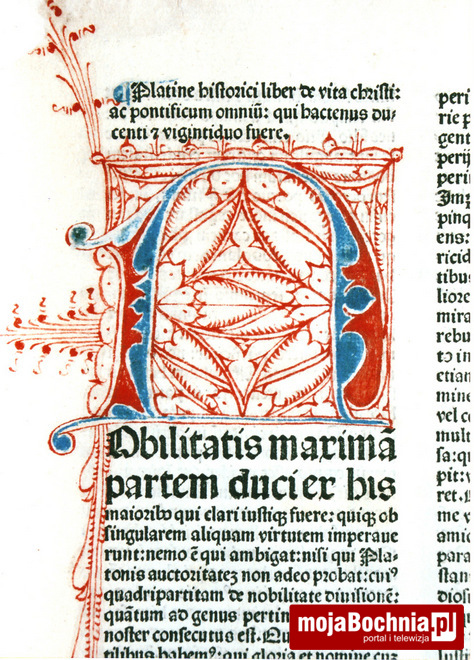 Platine historici liber de vita christi:
ac pontificum omniū: qui hactenus du-
centi ⁊ vigintiduo fuere.
N
Obilitatis maximā
partem duci ex his
maioribꝰ qui clari iustiqꝫ fuere: quiqꝫ ob
singularem aliquam virtutem imperaue
runt: nemo ē qui ambigat: nisi qui Pla-
tonis auctoritatez non adeo probat: cuiꝰ
quadripartitam de nobilitate diuisionē:
quātum ad genus pertin
noster consecutus est. Qu
tilibus habemꝰ: qui gloria et nomine cur
peri
rie p
gent
perij
peri
Imp
pinq
ens:
ricid
tibus
liore
mira
rebu
to in
etian
mine
vel c
mult
sa: qu
pit: v
ret.
me v
amic
para
stan
diosi
iusti
mojaBochnia.pl
portal i telewizja